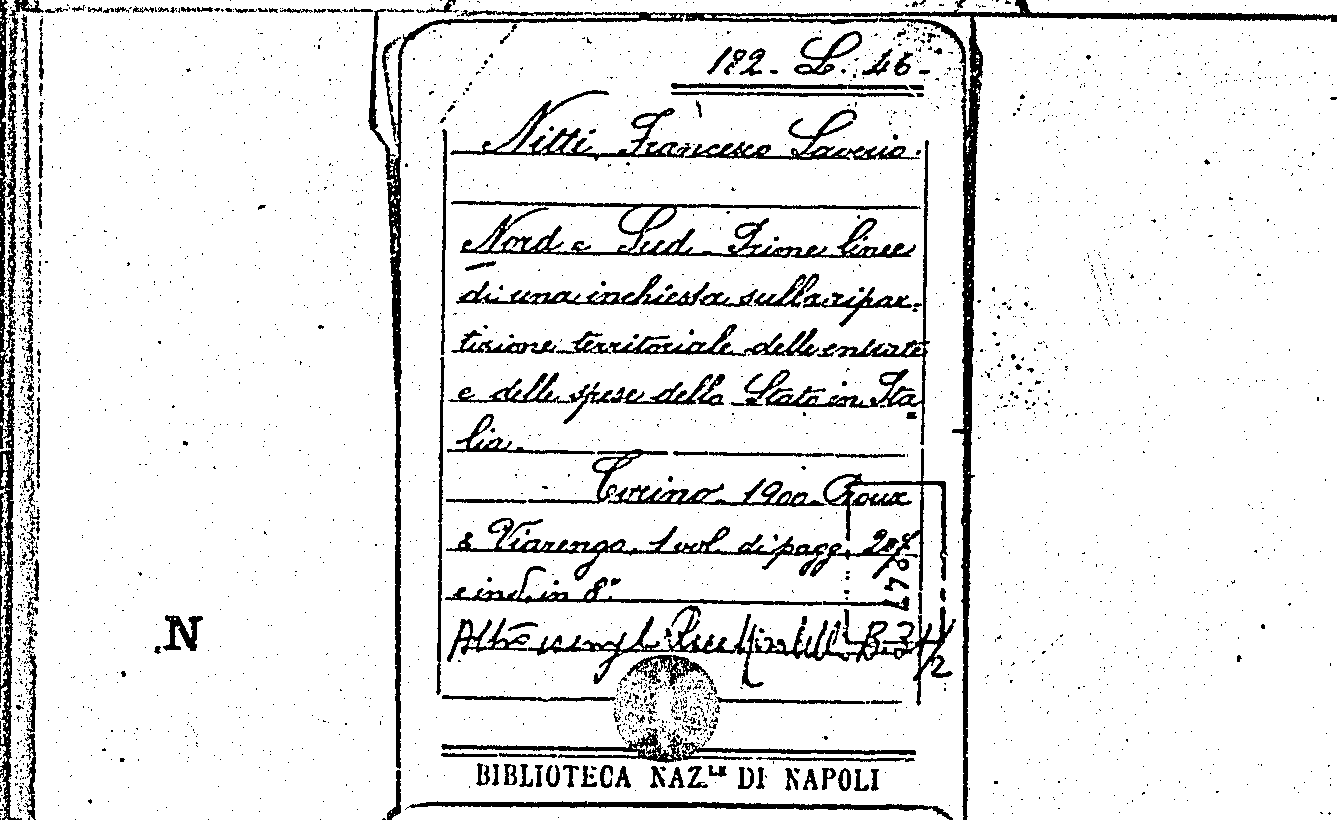 182. L. 46.
Nitti Francesco Saverio.
Nord e Sud. Prime linee
di una inchiesta sulla ripar=
tizione territoriale delle entrate
e delle spese dello Stato in Ita=
lia.
Torino. 1900. Roux
& Viarengo. 1 vol. di pagg. 207
e ind. in 8°
Altro
N
BIBLIOTECA NAZ.LE DI NAPOLI